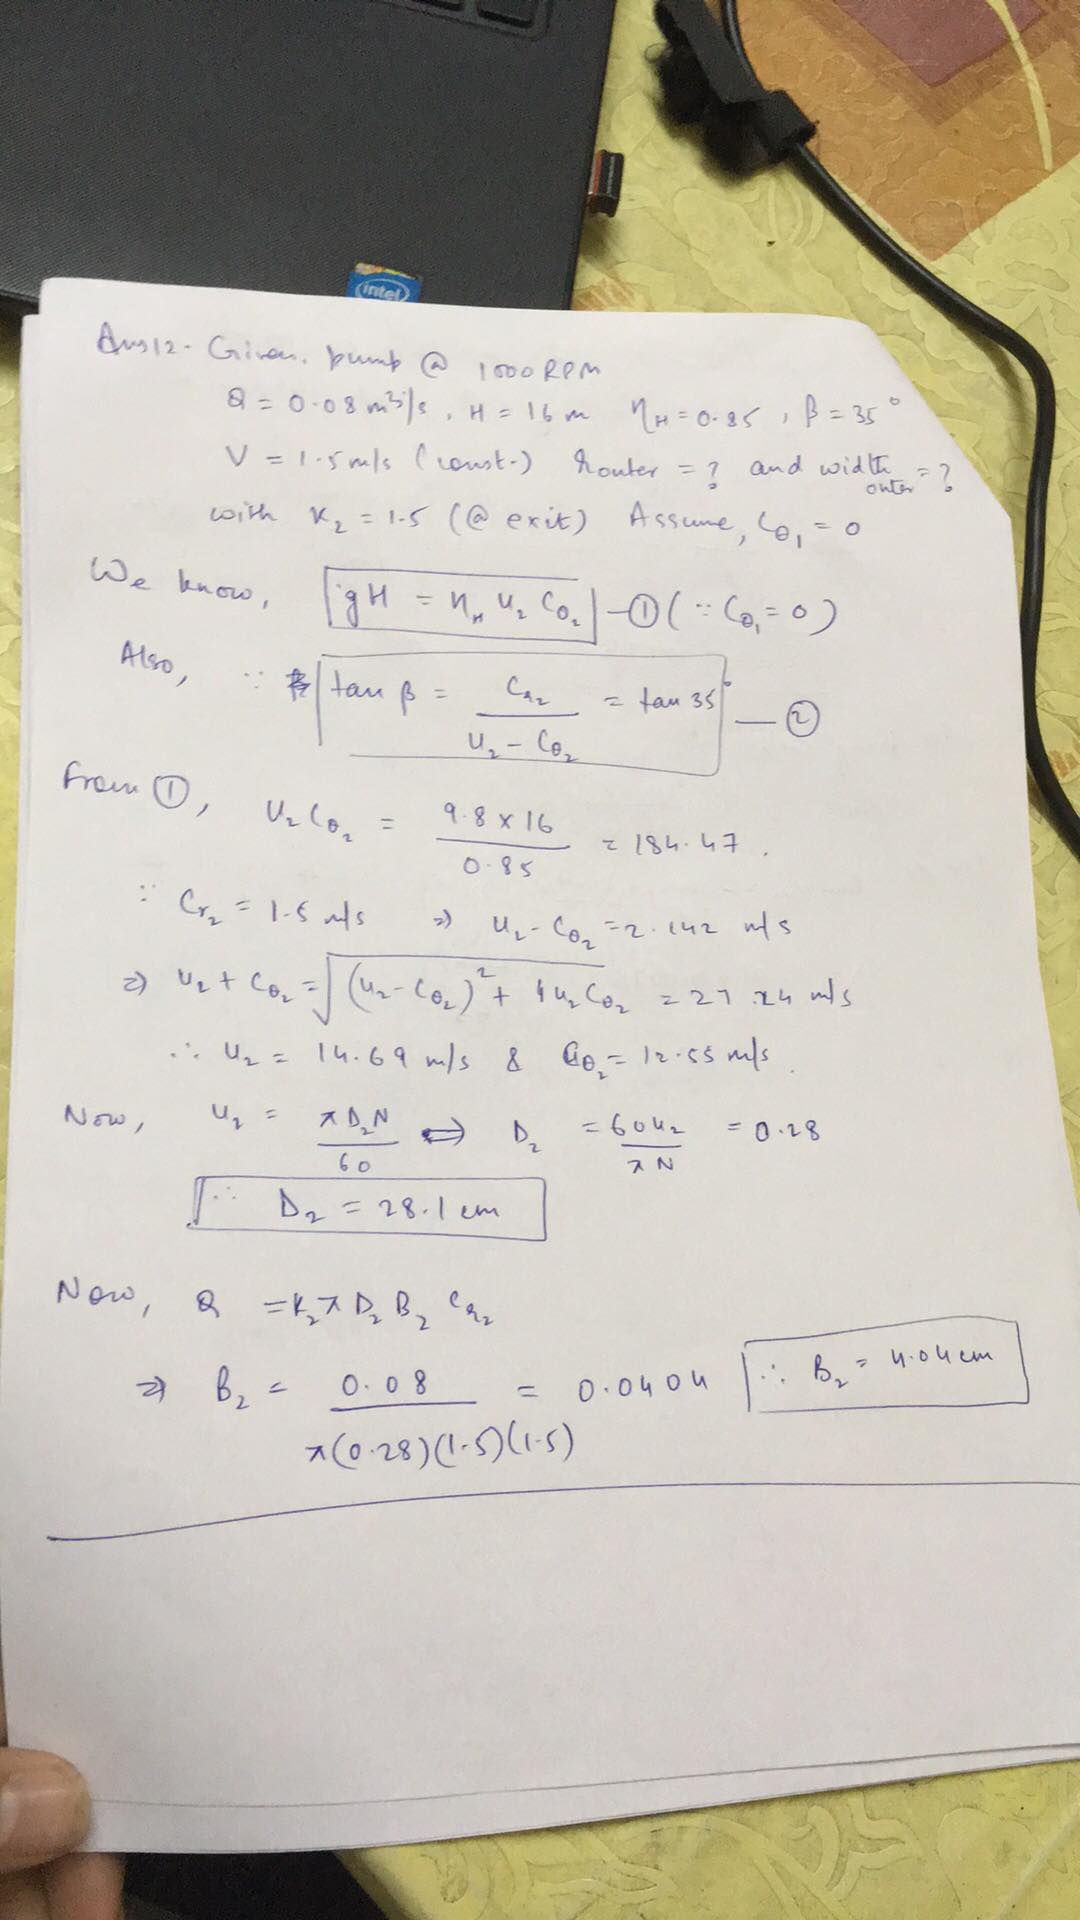 intel
Ans12- Given. pump @ 1000 RPM
Q = 0.08 m³/s, H = 16 m η_H = 0.85, β = 35°
V = 1.5 m/s (const.) router = ? and width outer = ?
with K₂ = 1.5 (@ exit) Assume, Cθ₁ = 0
We know, gH = η_H U₂ Cθ₂ —① (∵ Cθ₁ = 0)
Also, ∵ tan β = Cr₂ / (U₂ - Cθ₂) = tan 35° —②
From ①, U₂Cθ₂ = (9.8 × 16) / 0.85 = 184.47.
∵ Cr₂ = 1.5 m/s ⇒ U₂ - Cθ₂ = 2.142 m/s
⇒ U₂ + Cθ₂ = √((U₂ - Cθ₂)² + 4U₂Cθ₂) = 27.24 m/s
∴ U₂ = 14.69 m/s & Cθ₂ = 12.55 m/s.
Now, U₂ = πD₂N / 60 ⇔ D₂ = 60U₂ / πN = 0.28
∴ D₂ = 28.1 cm
Now, Q = K₂ π D₂ B₂ Cr₂
⇒ B₂ = 0.08 / (π(0.28)(1.5)(1.5)) = 0.0404 ∴ B₂ = 4.04 cm